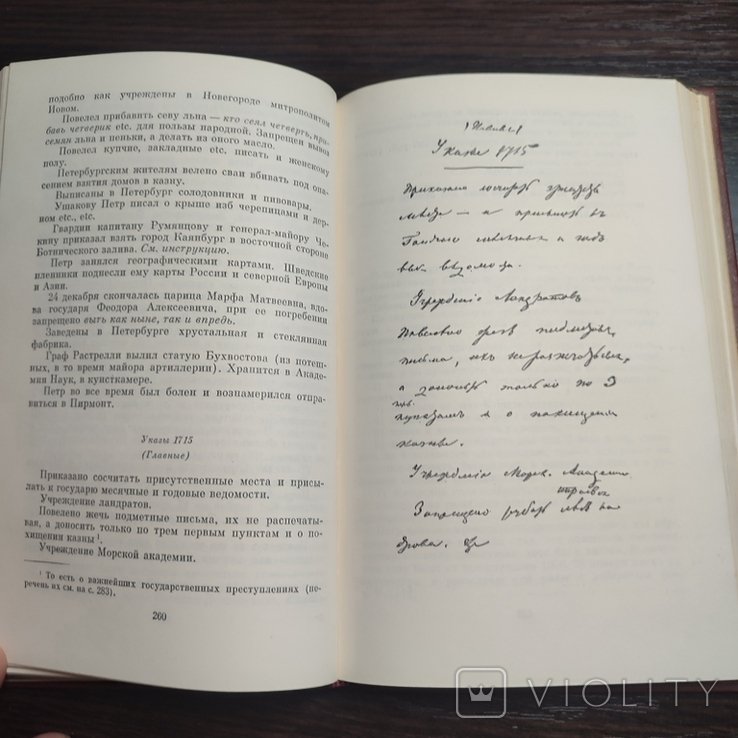 подобно как учреждены в Новегороде митрополитом
Иовом.
Повелел прибавить севу льна — кто сеял четверть, при-
бавь четверик etc. для пользы народной. Запрещен вывоз
семян льна и пеньки, а делать из оного масло.
Повелел купчие, закладные etc. писать и женскому
полу.
Петербургским жителям велено сваи вбивать под опа-
сением взятия домов в казну.
Выписаны в Петербург солодовники и пивовары.
Ушакову Петр писал о крыше изб черепицами и дер-
ном etc., etc.
Гвардии капитану Румянцову и генерал-майору Че-
кину приказал взять город Каянбург в восточной стороне
Ботнического залива. См. инструкцию.
Петр занялся географическими картами. Шведские
пленники поднесли ему карты России и северной Европы
и Азии.
24 декабря скончалась царица Марфа Матвеевна, вдо-
ва государя Феодора Алексеевича, при ее погребении
запрещено выть как ныне, так и впредь.
Заведены в Петербурге хрустальная и стеклянная
фабрика.
Граф Растрелли вылил статую Бухвостова (из потеш-
ных, в то время майора артиллерии). Хранится в Акаде-
мии Наук, в кунсткамере.
Петр во все время был болен и вознамерился отпра-
виться в Пирмонт.
Указы 1715
(Главные)
Приказано сосчитать присутственные места и присы-
лать к государю месячные и годовые ведомости.
Учреждение ландратов.
Повелено жечь подметные письма, их не распечаты-
вая, а доносить только по трем первым пунктам и о по-
хищения казны¹.
Учреждение Морской академии.
¹ То есть о важнейших государственных преступлениях (пе-
речень их см. на с. 283).
260
Указы 1715
Приказано
Учреждение Ландратов
письма, их не распечатывая,
а доносить только по 3
о похищении
Учреждение Морск. Академии
Запрещено
VIOLITY